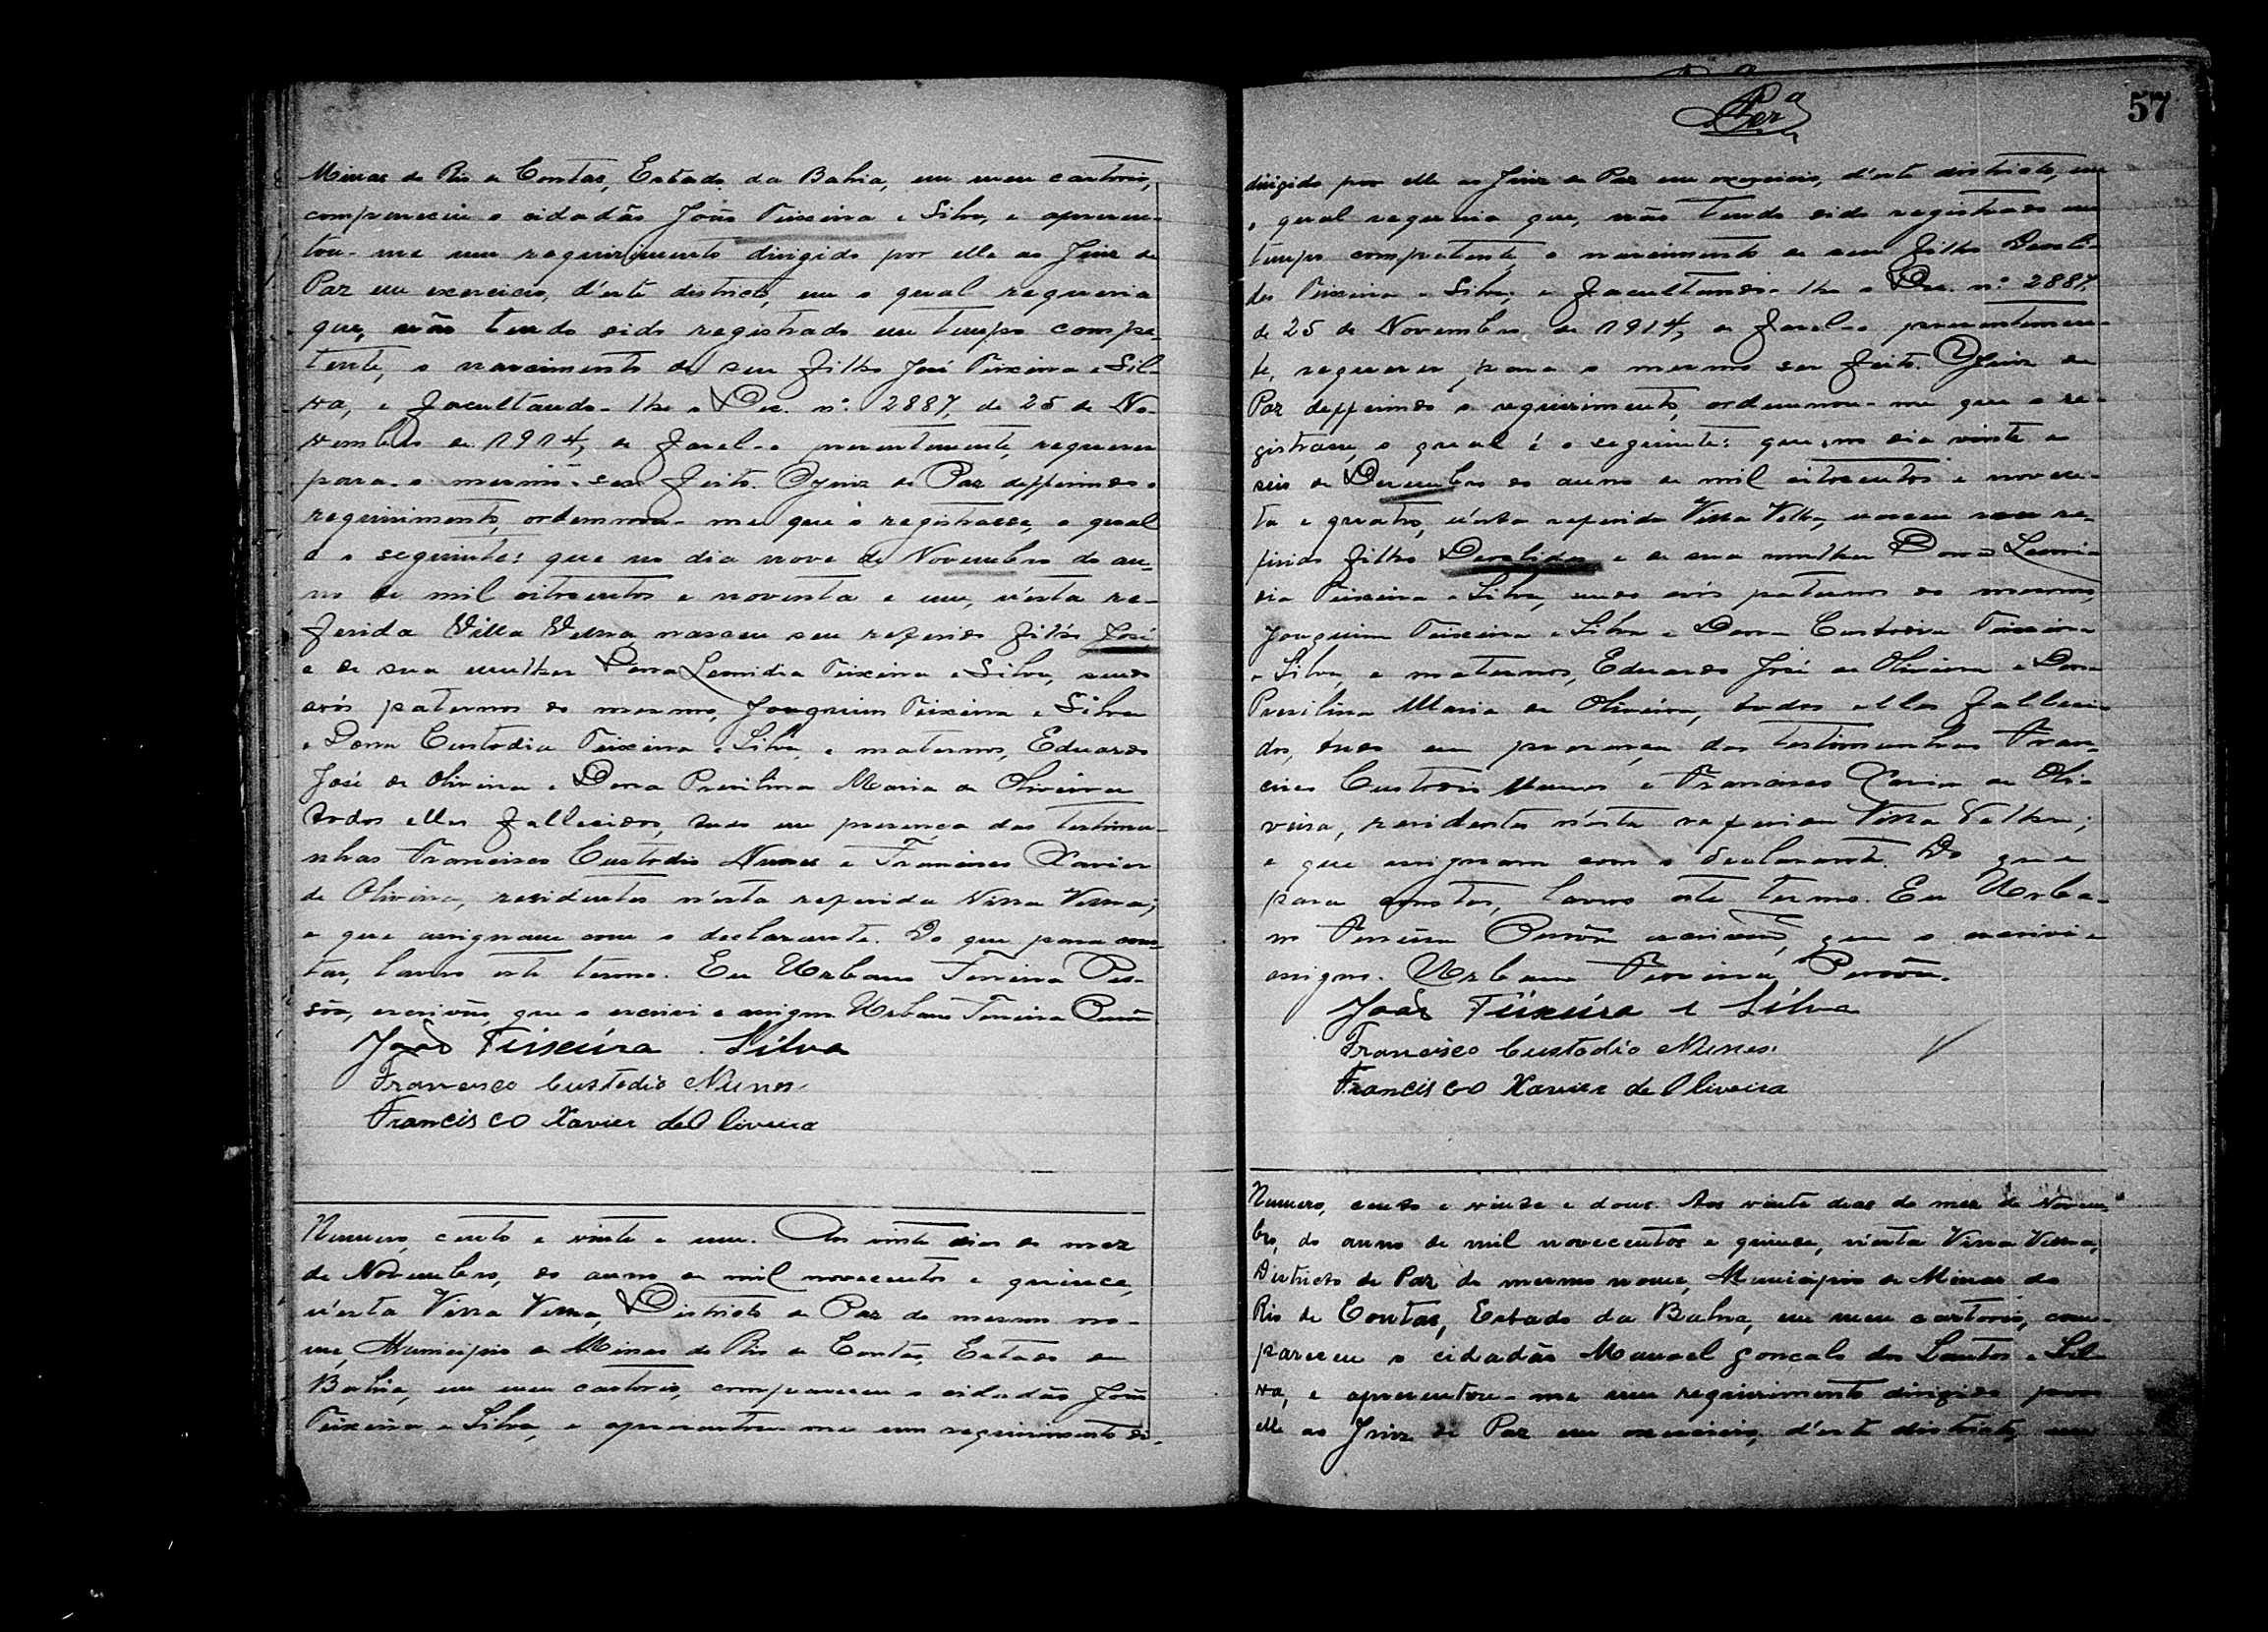 Minas do Rio de Contas, Estado da Bahia, em meu cartorio,
compareceu o cidadão João Teixeira e Silva, e apresen-
tou-me um requerimento dirigido por elle ao Juiz de
Paz em exercicio, d'este districto, em o qual requeria
que, não tendo sido registrado em tempo compe-
tente, o nascimento de seu filho José Teixeira e Sil-
va, e facultando-lhe o Dec. nº 2887, de 25 de No-
vembro de 1914, de fazel-o presentemente, requerer
para o mesmo ser feito. O Juiz de Paz defferindo o
requirimento, ordennou-me que o registrasse, o qual
é o seguinte: que no dia nove de Novembro do an-
no de mil oitocentos e noventa e um, n'esta re-
ferida Villa Velha nasceu seu referido filho José
e de sua mulher Dona Leonidia Teixeira e Silva, sendo
avós paternos do mesmo, Joaquim Teixeira e Silva
e Dona Custodia Teixeira e Silva, e maternos, Eduardo
José de Oliveira e Dona Maria de Oliveira
todos elles fallecidos, tudo em presença das testimu-
nhas Francisco Custodio Nunes e Francisco Xavier
de Oliveira, residentes n'esta referida Villa Velha;
e que assignam com o declarante. Do que para cons-
tar, lavro este termo. Eu Urbano Ferreira Pes-
sôa, escrivão, que o escrevi e assigno. Urbano Ferreira Pessôa
João Teixeira e Silva
Francisco Custodio Nunes
Francisco Xavier de Oliveira
Numero, cento e vinte e um. Aos vinte dias do mez
de Novembro, do anno de mil novecentos e quinze,
n'esta Villa Velha, Districto de Paz do mesmo no-
me, Municipio de Minas do Rio de Contas, Estado da
Bahia, em meu cartorio, compareceu o cidadão João
Teixeira e Silva, e apresentou-me um requirimento di-
57
dirigido por elle ao Juiz de Paz em exercicio, d'este districto, em
o qual requeria que, não tendo sido registrado em
tempo competente o nascimento de seu filho Deocli-
des Teixeira e Silva, e facultando-lhe o Dec. nº 2887,
de 25 de Novembro de 1914, de fazel-o presentemen-
te, requerer, para o mesmo ser feito. O Juiz de
Paz defferindo o requirimento, ordennou-me que o re-
gistrasse, o qual é o seguinte: que, no dia vinte e
seis de Dezembro do anno de mil oitocentos e noven-
ta e quatro, n'esta referida Villa Velha, nasceu seu re-
ferido filho Deoclides e de sua mulher Dona Leoni-
dia Teixeira e Silva, sendo avós paternos do mesmo,
Joaquim Teixeira e Silva e Dona Custodia Teixeira
e Silva, e maternos, Eduardo José de Oliveira e Dona
Maria de Oliveira, todos elles falleci-
dos, tudo em presença das testimunhas Fran-
cisco Custodio Nunes e Francisco Xavier de Oli-
veira, residentes n'esta referida Villa Velha;
e que assignam com o declarante. Do que
para constar, lavro este termo. Eu Urba-
no Ferreira Pessôa escrivão, que o escrevi e
assigno. Urbano Ferreira Pessôa.
João Teixeira e Silva
Francisco Custodio Nunes.
Francisco Xavier de Oliveira
Numero, cento e vinte e dous. Aos vinte dias do mez de Novem-
bro, do anno de mil novecentos e quinze, n'esta Villa Velha,
Districto de Paz do mesmo nome, Municipio de Minas do
Rio de Contas, Estado da Bahia, em meu cartorio, com-
pareceu o cidadão Manoel Gonçalo dos Santos e Sil-
va, e apresentou-me um requirimento dirigido por
elle ao Juiz de Paz em exercicio, d'este districto, em